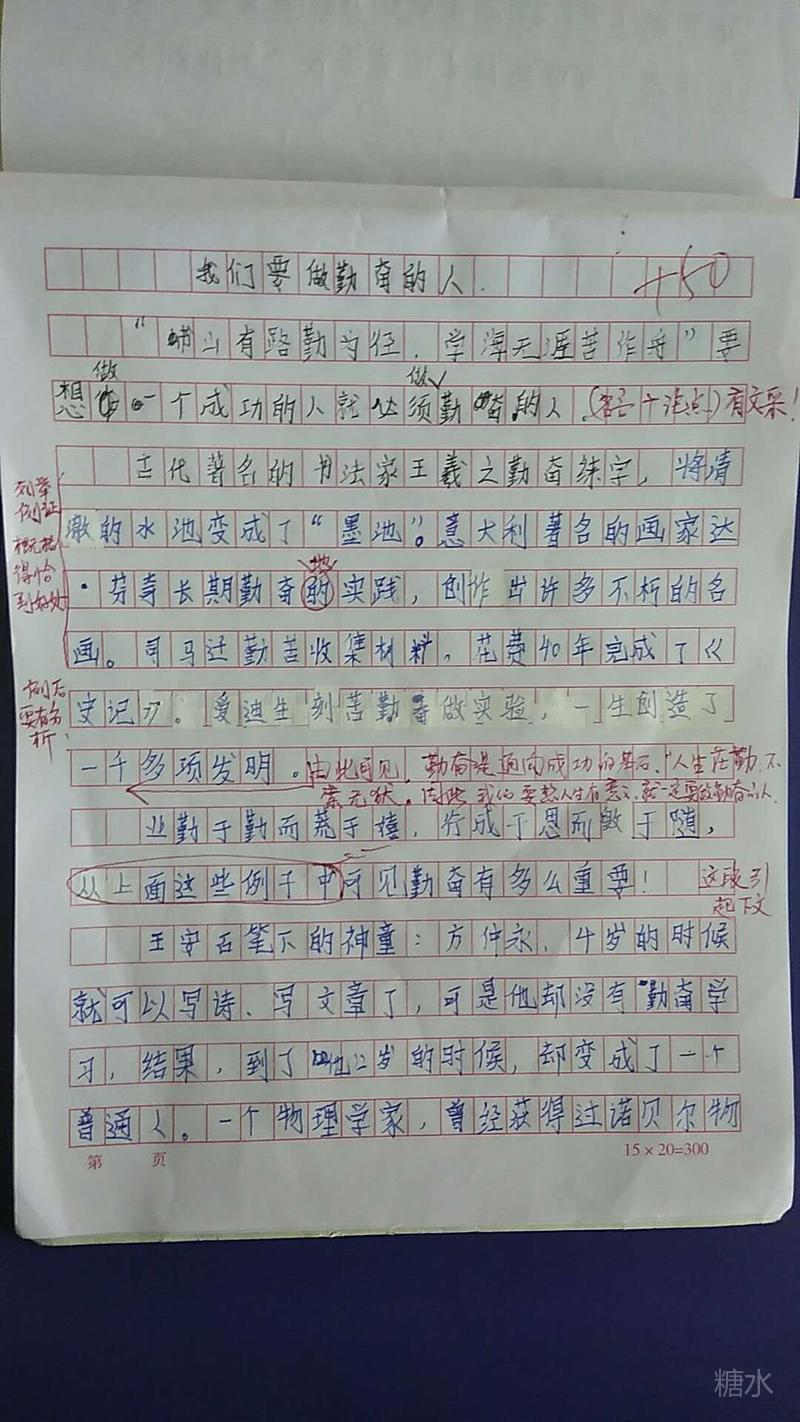 我们要做勤奋的人.
+50
"山有路勤为径,学海无涯苦作舟"要
想做一个成功的人就必须做勤奋的人.(名言+论点)有文采!
古代著名的书法家王羲之勤奋练字,将清
列举
例证
概括
得恰
到好处
澈的水池变成了"墨池"。意大利著名的画家达
·芬奇长期勤奋的实践,创作出许多不朽的名
地
画。司马迁勤苦收集材料,花费40年完成了《
例后
要有分
析.
史记》。爱迪生刻苦勤奋做实验,一生创造了
一千多项发明。由此可见,勤奋是通向成功的基石."人生在勤,不
索无获。因此我们要想人生有意义,就一定要做勤奋的人.
业勤于勤而荒于嬉,行成于思而毁于随,
从上面这些例子中可见勤奋有多么重要! 这段引
起下文
王安石笔下的神童:方仲永,4岁的时候
就可以写诗、写文章了,可是他却没有勤奋学
习,结果,到了他12岁的时候,却变成了一个
普通人。一个物理学家,曾经获得过诺贝尔物
第 页
15×20=300
糖水